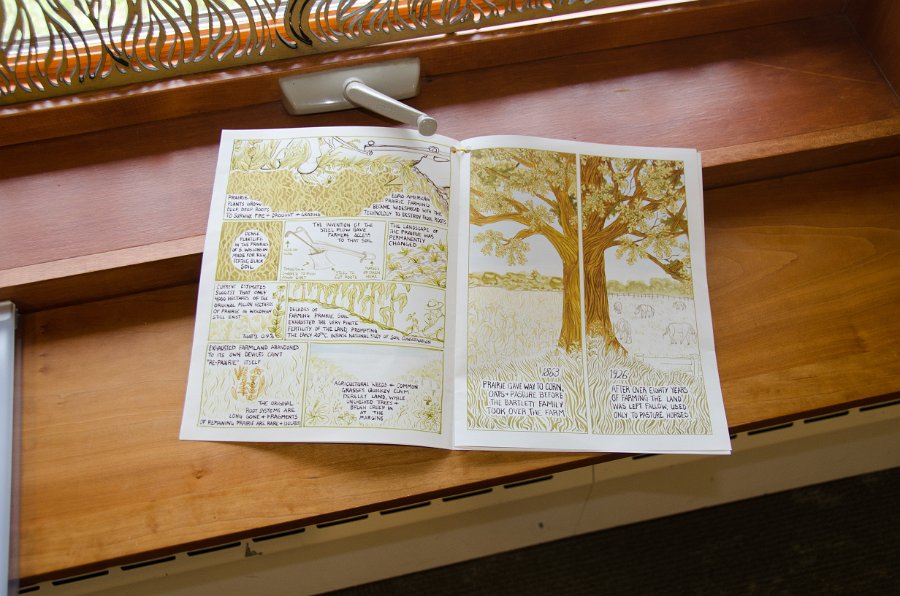 PRAIRIE
PLANTS GROW
DEEP, DEEP ROOTS
TO SURVIVE FIRE + DROUGHT + GRAZING
EURO-AMERICAN
PRAIRIE FARMING
BECAME WIDESPREAD WITH THE
TECHNOLOGY TO DESTROY THOSE ROOTS
DENSE
PLANTLIFE
IN THE PRAIRIES
OF S. WISCONSIN
MADE FOR RICH,
FERTILE, BLACK
SOIL
THE INVENTION OF THE
STEEL PLOW GAVE
FARMERS ACCESS
TO THAT SOIL
THE LANDSCAPE OF
THE PRAIRIE WAS
PERMANENTLY
CHANGED
CURRENT ESTIMATES
SUGGEST THAT ONLY
4000 HECTARES OF THE
ORIGINAL MILLION HECTARES
OF PRAIRIE IN WISCONSIN
STILL EXIST
DECADES OF
FARMING PRAIRIE SOIL
EXHAUSTED THE VERY FINITE
FERTILITY OF THE LAND, PROMPTING
THE EARLY 20TH C.
NATIONAL STUDY OF SOIL CONSERVATION
EXHAUSTED FARMLAND ABANDONED
TO ITS OWN DEVICES CAN'T
"RE-PRAIRIE" ITSELF
THE ORIGINAL
ROOT SYSTEMS ARE
LONG GONE + FRAGMENTS
OF REMAINING PRAIRIE ARE RARE +
AGRICULTURAL WEEDS + COMMON
GRASSES QUICKLY CLAIM
DERELICT LAND, WHILE
UNCHECKED TREES +
BRUSH CREEP IN
AT THE
MARGINS
1863
PRAIRIE GAVE WAY TO CORN,
OATS + PASTURE BEFORE
THE BARTLETT FAMILY
TOOK OVER THE FARM.
1926
AFTER OVER EIGHTY YEARS
OF FARMING THE LAND
WAS LEFT FALLOW, USED
ONLY TO PASTURE HORSES